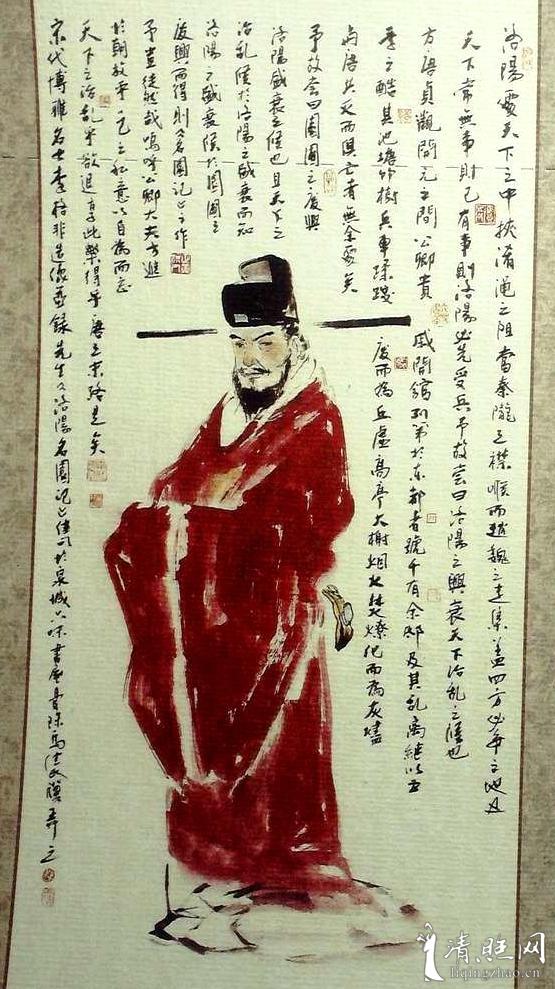 洛陽處天下之中挾淆黽之阻當秦隴之襟喉而趙魏之走集盖四方必爭之地也
天下常無事則已有事則洛陽必先受兵予故嘗曰洛陽之興衰天下治亂之候也
方唐貞觀開元之間公卿貴戚開館列第於東都者號千有余邸及其亂離繼以五
季之酷其池塘竹樹兵車蹂踐廢而為丘虛高亭大榭烟火焚燎化而為灰燼
與唐共灭而俱亡者無余處矣
予故嘗曰園圃之廢興
洛陽盛衰之候也且天下之
治亂候於洛陽之盛衰而知
洛陽之盛衰候於園圃之
廢興而得則名園記之作
予豈徒然哉嗚呼公卿大夫方進
於朝放乎一己之私意以自為而忘
天下之治乱乎欲退享此樂得乎唐之末路是矣
宋代博雅名士李格非造像並錄先生之洛陽名園記之佳句於泉城書屋
清旺网
liqingzhao.cn